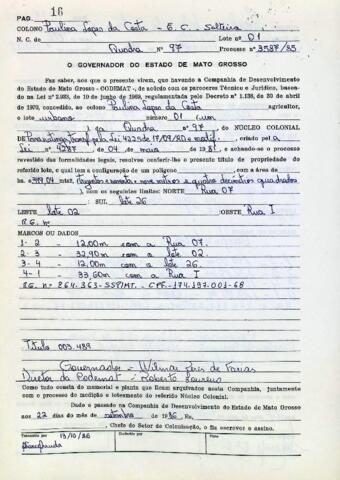 PAG. 16
COLONO Paulina Lopes da Costa - E.C. Solteira
N. C. de Lote nº 01
Quadra nº 97 Processo nº 3587/85
O GOVERNADOR DO ESTADO DE MATO GROSSO
Faz saber, aos que o presente virem, que havendo a Companhia de Desenvolvimento
do Estado de Mato Grosso - CODEMAT -, de acordo com os pareceres Técnico e Jurídico, basea-
do na Lei nº 2.993, de 10 de junho de 1969, regulamentada pelo Decreto nº 1.138, de 30 de abril
de 1970, concedido, ao colono Paulina Lopes da Costa agricultor,
o lote urbano número 01 (um
) da Quadra nº 97 do NÚCLEO COLONIAL
DE Paranatinga transf. pela Lei 4225 de 17/09/80 e modif. criado pela
Lei nº 4287 de 04 de maio de 1981, e achando-se o processo
revestido das formalidades legais, resolveu conferir-lhe o presente título de propriedade do
referido lote, o qual tem a configuração de um polígono com a área de
mts2,
e os seguintes limites: NORTE Rua 07
SUL lote 26
LESTE lote 02 OESTE Rua I
R.G. nº
MARCOS OU DADOS
1-2 - 12,00m com a Rua 07.
2-3 - 32,90m com o lote 02.
3-4 - 12,00m com o lote 26.
4-1 - 33,60m com a Rua I
R.G. nº 264.363-SSP/MT. - CPF- 174.137.001-68
Título 003.489
Governador - Wilmar Peres de Farias
Diretor da Codemat - Roberto Loureiro
Como tudo consta do memorial e planta que ficam arquivados nesta Companhia, juntamente
com o processo de medição e loteamento do referido Núcleo Colonial.
Dado e passado na Companhia de Desenvolvimento do Estado de Mato Grosso
aos 22 dias do mês de setembro de 1986 Eu,
Chefe do Setor de Colonização, o fiz escrever e assino.
Transcrito por 13/10/86 Conferido por Visto